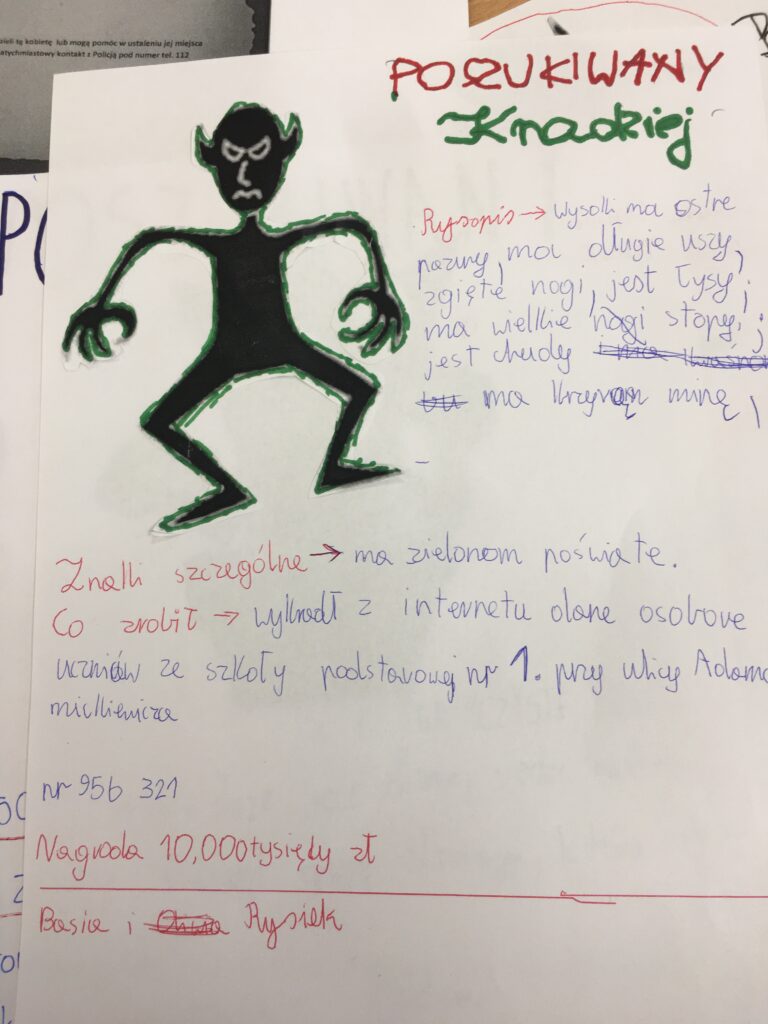 zieli tę kobietę lub mogą pomóc w ustaleniu jej miejsca
atychmiastowy kontakt z Policją pod numer tel. 112
POSZUKIWANY
Knadziej
Rysopis → wysoki ma ostre
pazury, ma długie uszy,
zgięte nogi, jest łysy,
ma wielkie nogi stopy,
jest chudy i ma
ma krzywą minę,
Znaki szczególne → ma zielonom poświate.
Co zrobił → wykradł z internetu dane osobowe
uczniów ze szkoły podstawowej nr 1. przy ulicy Adama
mickiewicza
nr 956 321
Nagroda 10,000tysięcy zł
Basia i Rysiek